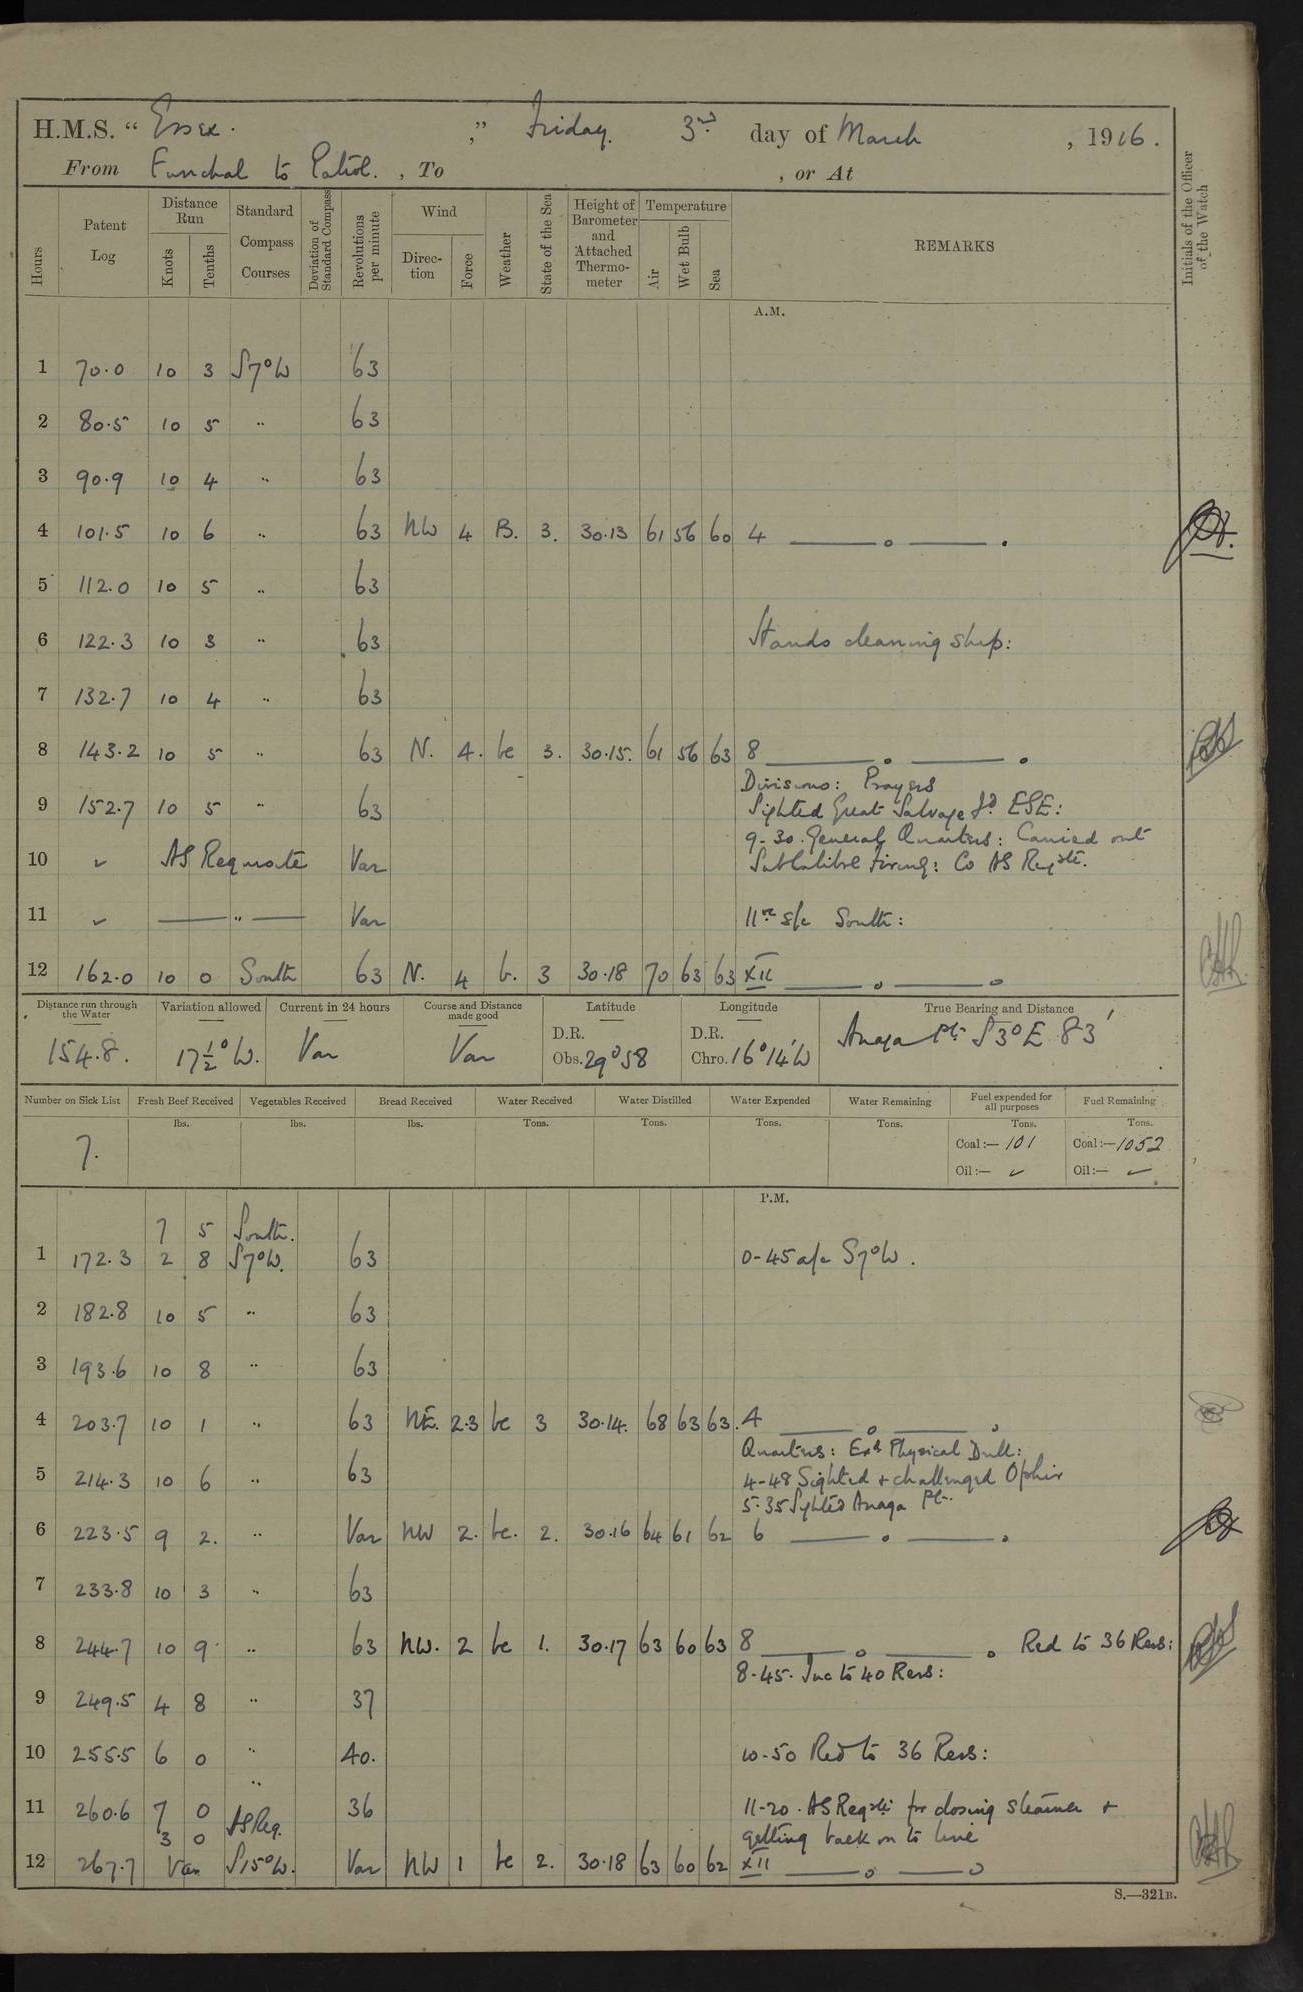 H.M.S. "Essex.", Friday. 3rd day of March, 1916.
From Funchal to Patrol., To , or At
Hours Patent Log Distance Run Knots Tenths Standard Compass Courses Deviation of Standard Compass Revolutions per minute Wind Direction Force Weather State of the Sea Height of Barometer and Attached Thermometer Temperature Air Wet Bulb Sea REMARKS Initials of the Officer of the Watch
A.M.
1 70.0 10 3 S7°W 63
2 80.5 10 5 " 63
3 90.9 10 4 " 63
4 101.5 10 6 " 63 NW 4 B. 3. 30.13 61 56 60 4
5 112.0 10 5 " 63
6 122.3 10 3 " 63 Hands cleaning ship:
7 132.7 10 4 " 63
8 143.2 10 5 " 63 N. 4. bc 3. 30.15. 61 56 63 8
Divisions: Prayers
9 152.7 10 5 " 63 Sighted Great Salvage Id ESE:
9-30. General Quarters: Carried out
10 ✓ AS Requisite Var Subcalibre firing: Co AS Reqste.
11 ✓ " Var 11.00 s/c South:
12 162.0 10 0 South 63 N. 4 b. 3 30.18 70 63 63 XII
Distance run through the Water Variation allowed Current in 24 hours Course and Distance made good Latitude Longitude True Bearing and Distance
154.8. 17½°W. Var Var D.R. Obs. 29°58 D.R. Chro. 16°14'W Anaga Pt. S3°E 83'
Number on Sick List Fresh Beef Received Vegetables Received Bread Received Water Received Water Distilled Water Expended Water Remaining Fuel expended for all purposes Fuel Remaining
lbs. lbs. lbs. Tons. Tons. Tons. Tons. Tons. Tons.
7. Coal:— 101 Coal:— 1052
Oil:— ✓ Oil:— ✓
P.M.
7 5 South.
1 172.3 2 8 S7°W. 63 0-45 a/c S7°W.
2 182.8 10 5 " 63
3 193.6 10 8 " 63
4 203.7 10 1 " 63 NE. 2.3 bc 3 30.14. 68 63 63. 4
Quarters: Exd Physical Drill:
5 214.3 10 6 " 63 4-48 Sighted + challenged Ophir
5.35 Sighted Anaga Pt.
6 223.5 9 2. " Var NW 2. bc. 2. 30.16 64 61 62 6
7 233.8 10 3 " 63
8 244.7 10 9 " 63 NW. 2 bc 1. 30.17 63 60 63 8 Red to 36 Revs:
8-45. Inc to 40 Revs:
9 249.5 4 8 " 37
10 255.5 6 0 " 40. 10-50 Red to 36 Revs:
"
11 260.6 7 0 AS Req. 36 11-20. AS Reqste: for closing steamer +
3 0 getting back on to line
12 267.7 Var S15°W. Var NW 1 bc 2. 30.18 63 60 62 XII
S.—321B.